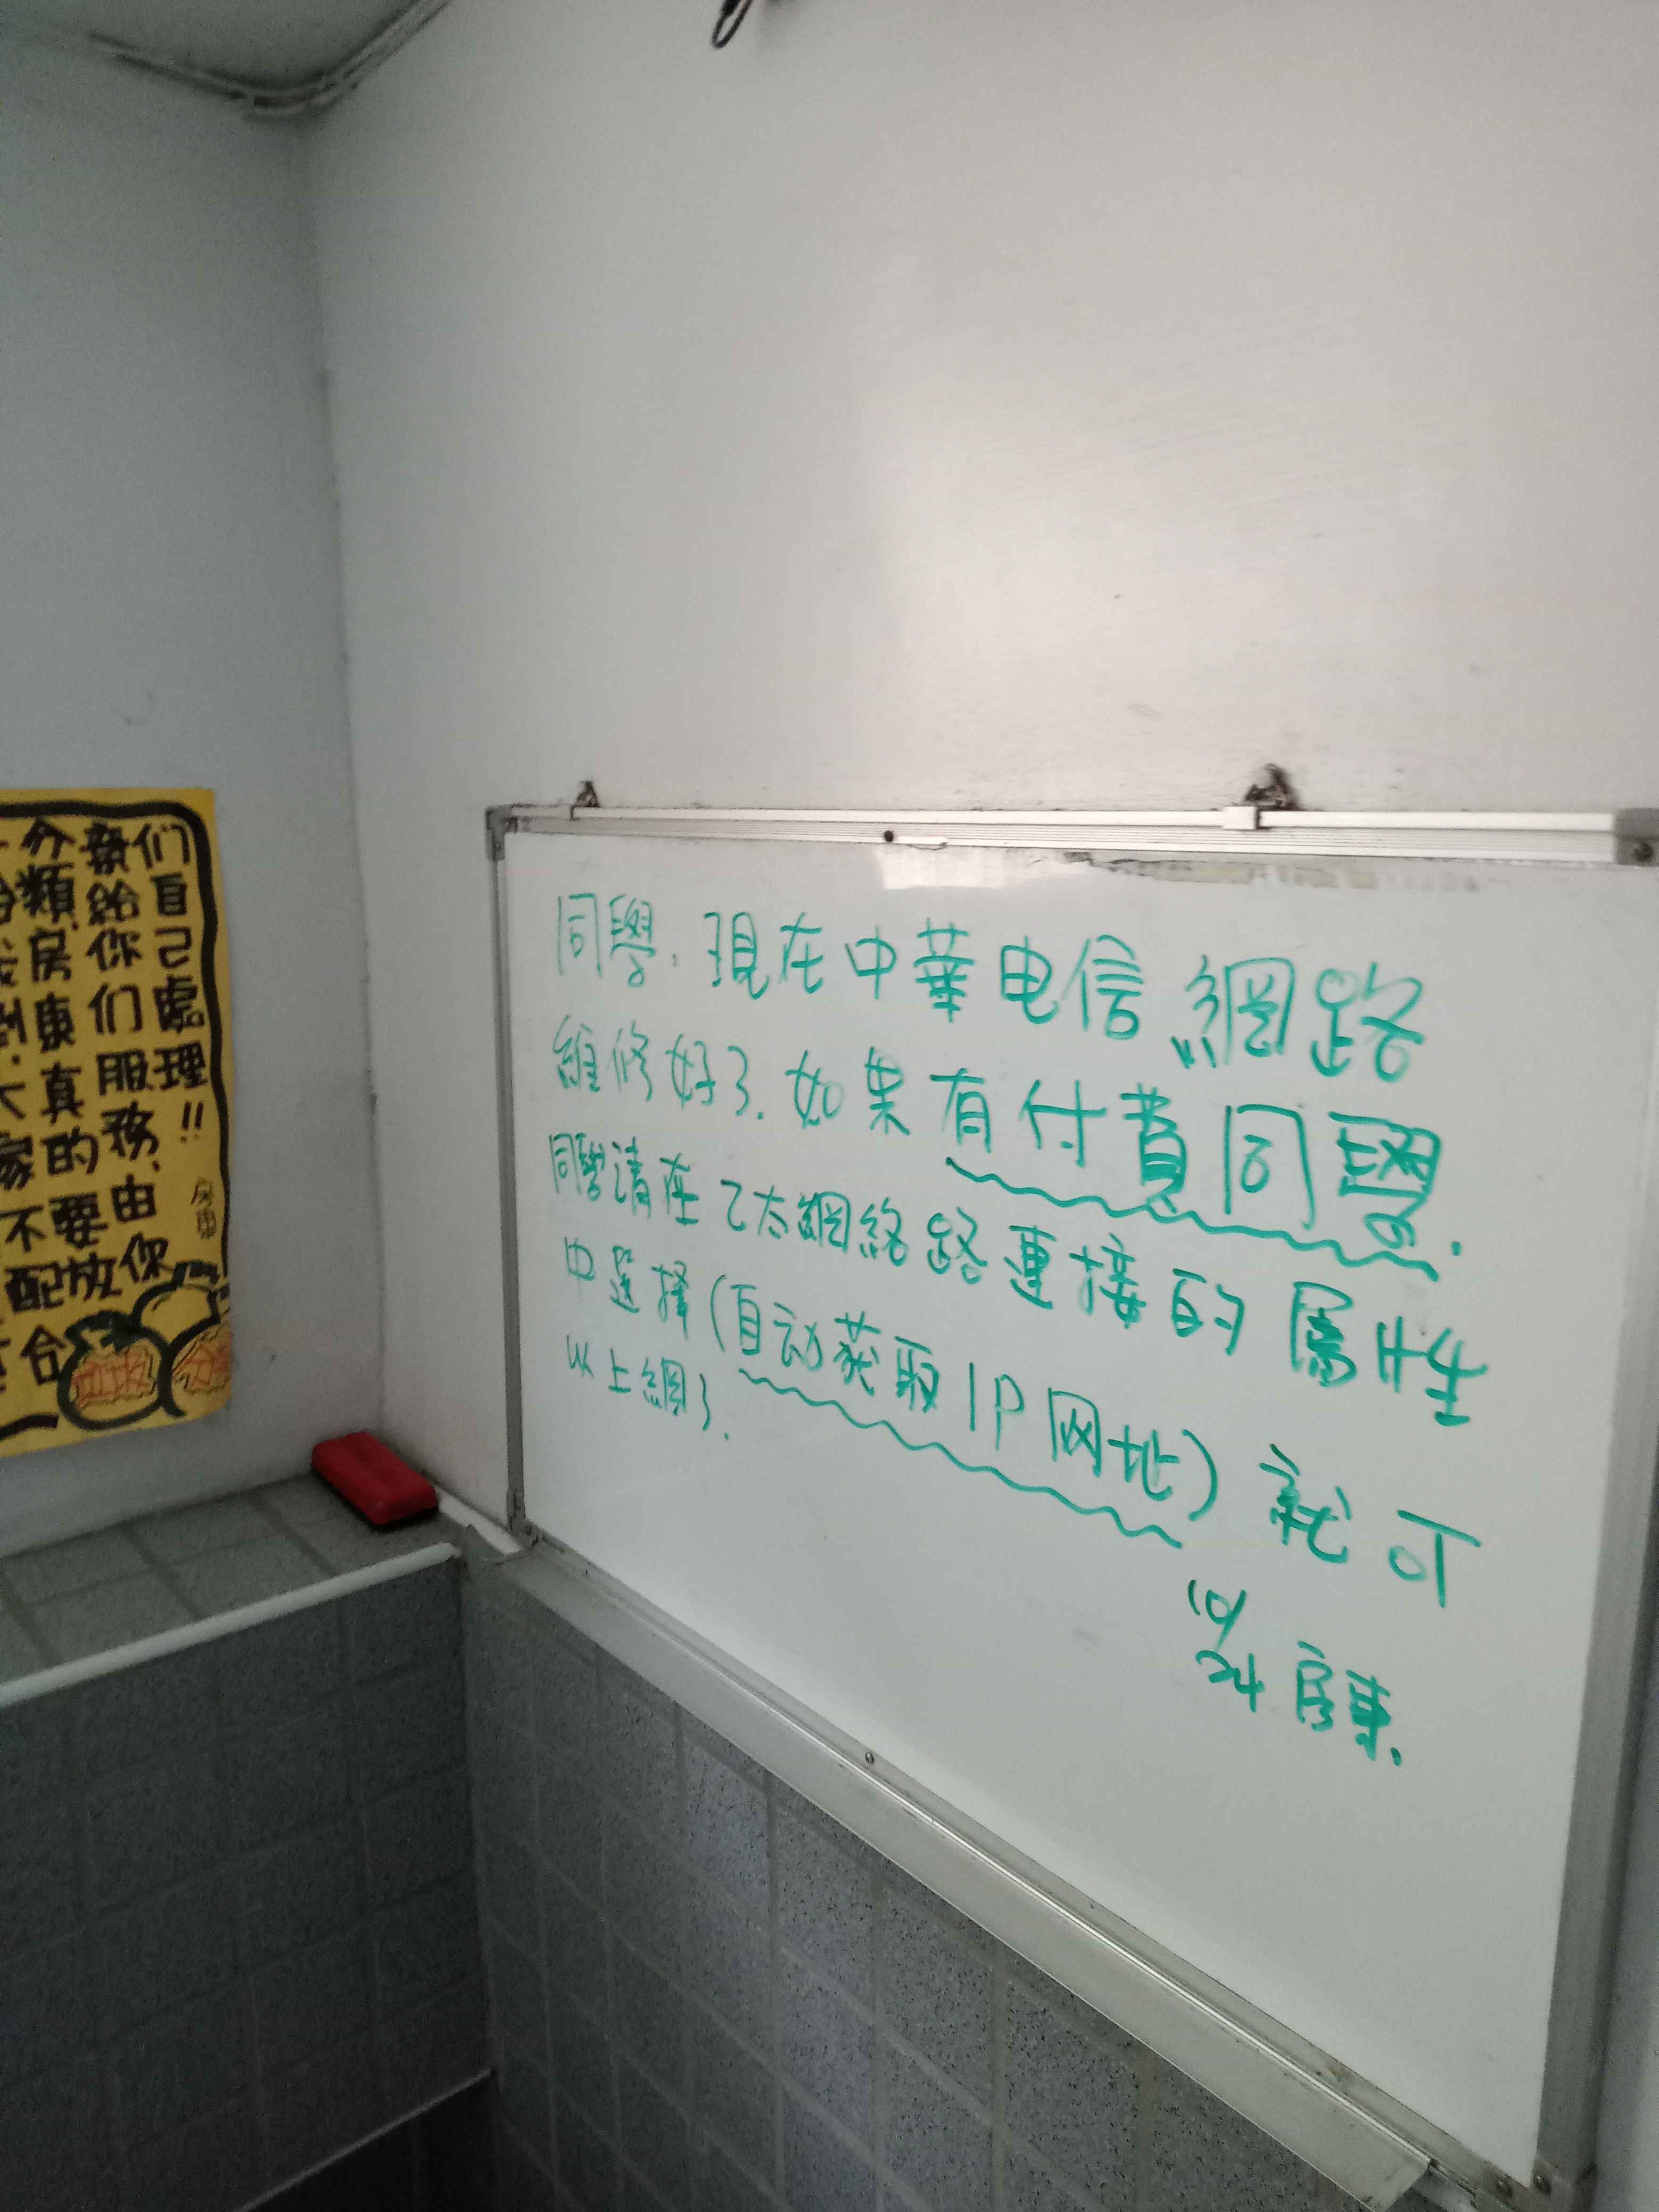 同學.現在中華电信網路
維修好了.如果有付費同學.
同學请在乙太網絡路連接的屬性
中選擇(自动获取IP网址)就可
以上網了.
10/24房東.
们自己處理!!
新給你们服務.由你
分類.房東真的不要放